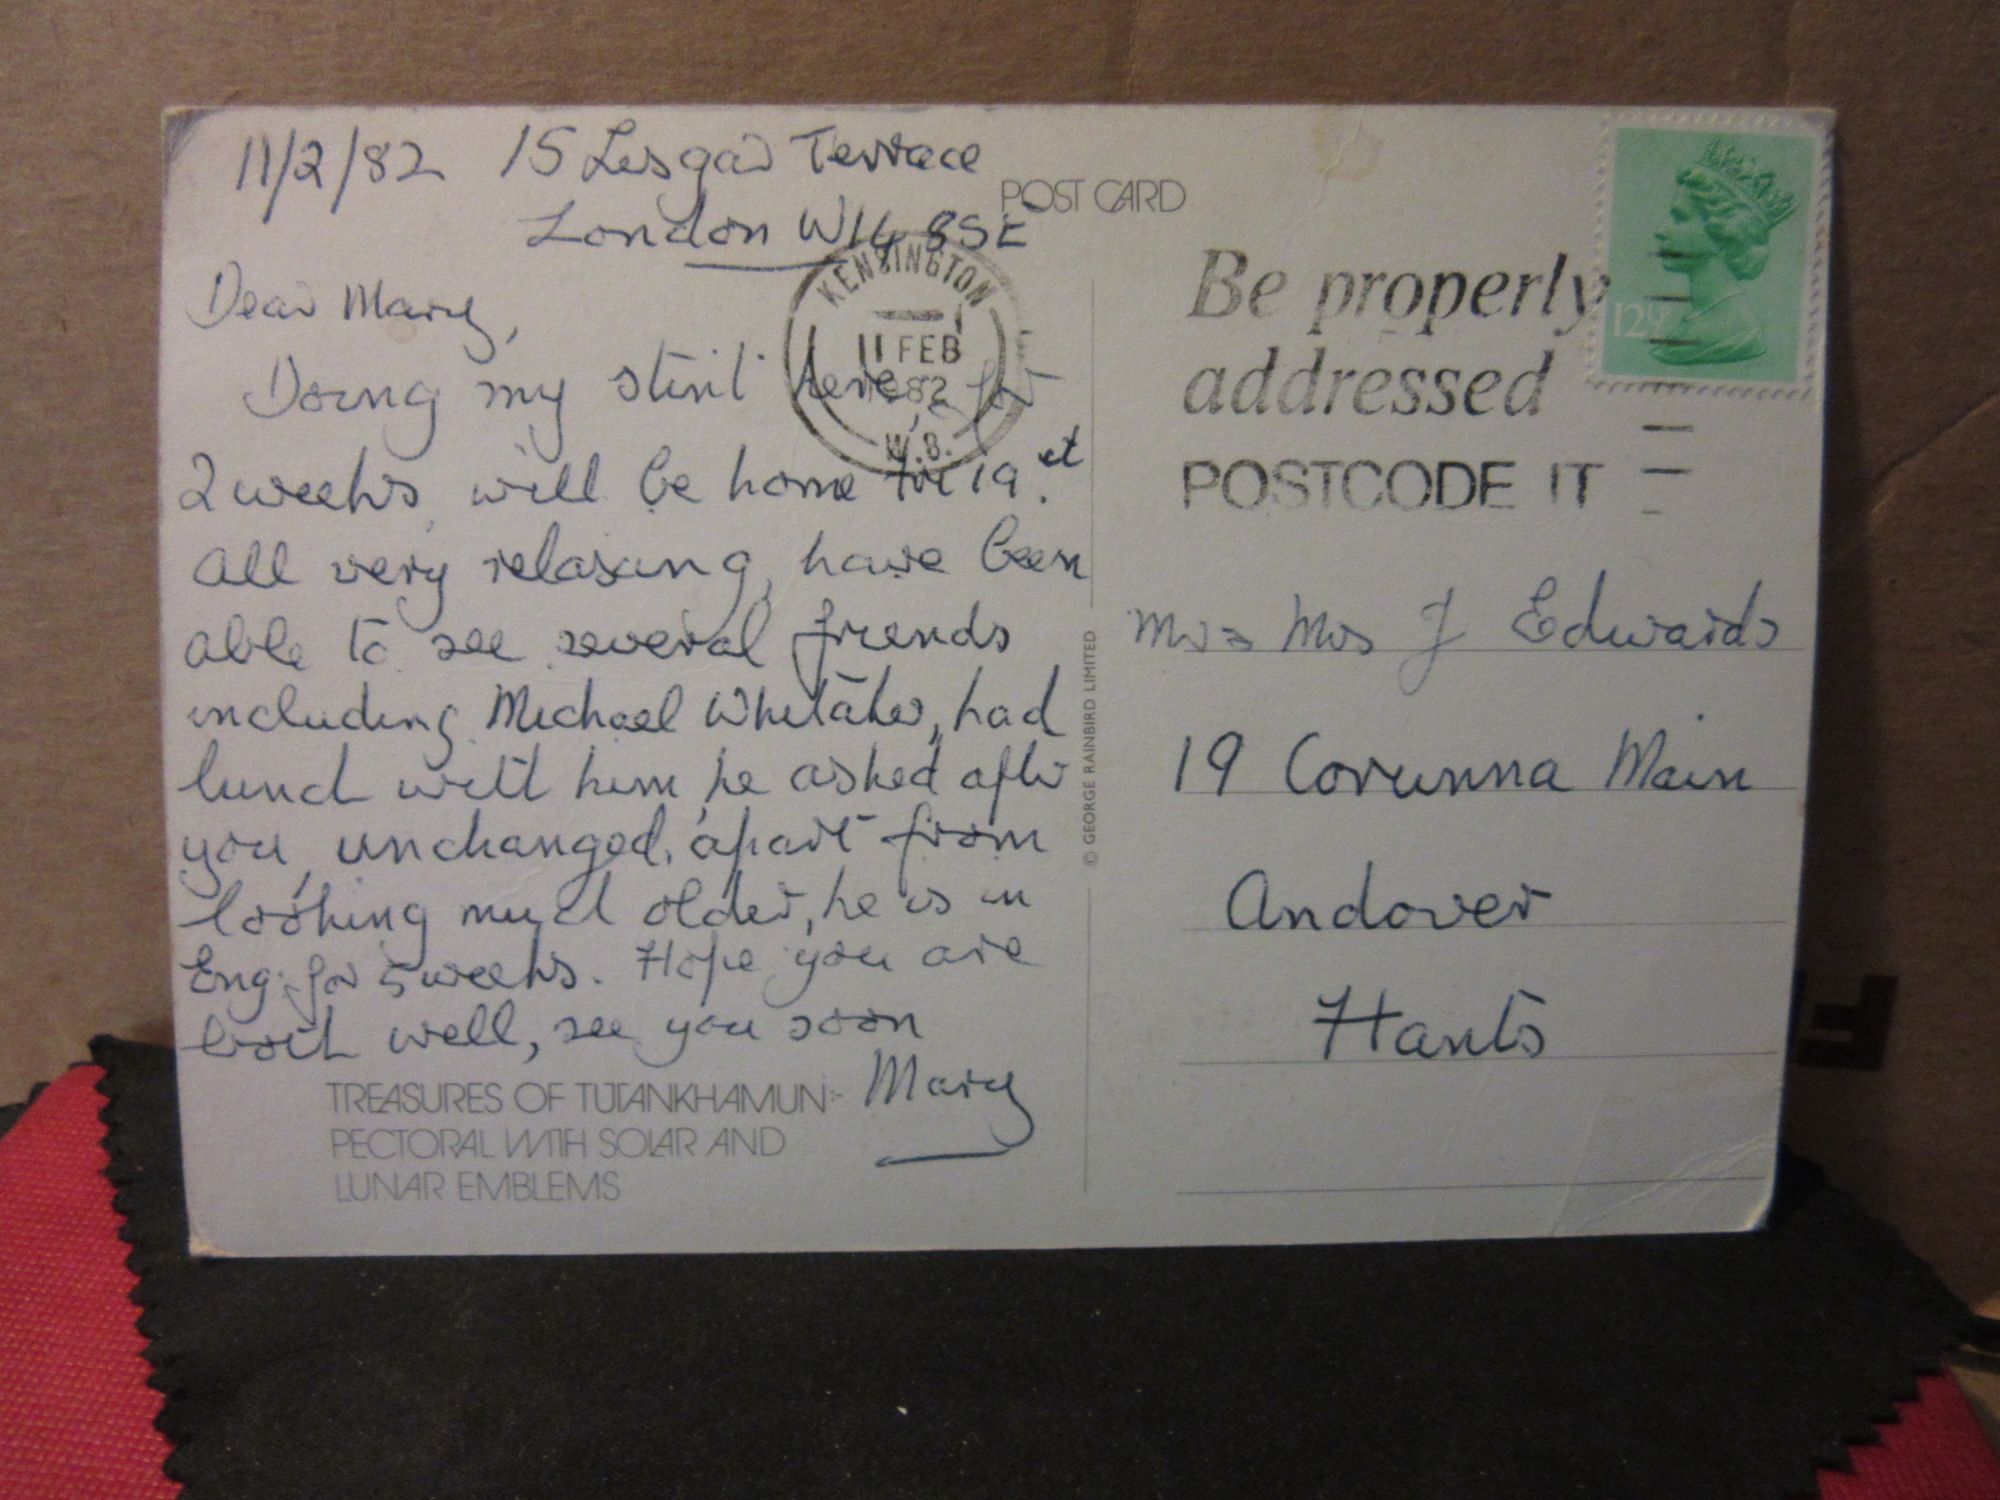 11/2/82 15 Lesgar Terrace
London W14 8SE
POST CARD
KENSINGTON
11 FEB
1982
W.8.
Dear Mary,
Doing my stint here, for
2 weeks, will be home the 19
All very relaxing, have been
able to see several friends
including Michael Whitaker, had
lunch with him, he asked after
you, unchanged, apart from
looking much older, he is in
Eng. for 5 weeks. Hope you are
both well, see you soon
Mary
TREASURES OF TUTANKHAMUN:-
PECTORAL WITH SOLAR AND
LUNAR EMBLEMS
© GEORGE RAINBIRD LIMITED
Be properly
addressed
POSTCODE IT
12½P
Mrs J Edwards
19 Corunna Main
Andover
Hants